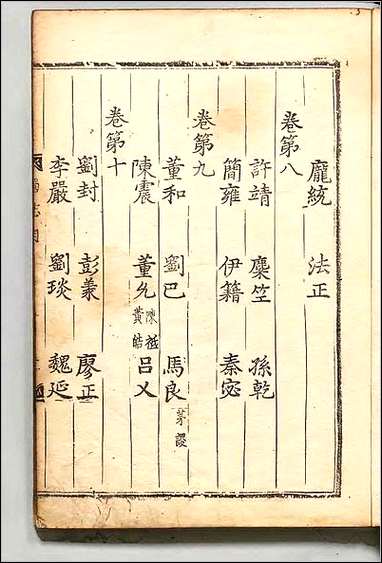 龐統 法正
卷第八
許靖 麋竺 孫乾
簡雍 伊籍 秦宓
卷第九
董和 劉巴 馬良 弟謖
陳震 董允 陳祗 黃皓 呂乂
卷第十
劉封 彭羕 廖立
李嚴 劉琰 魏延